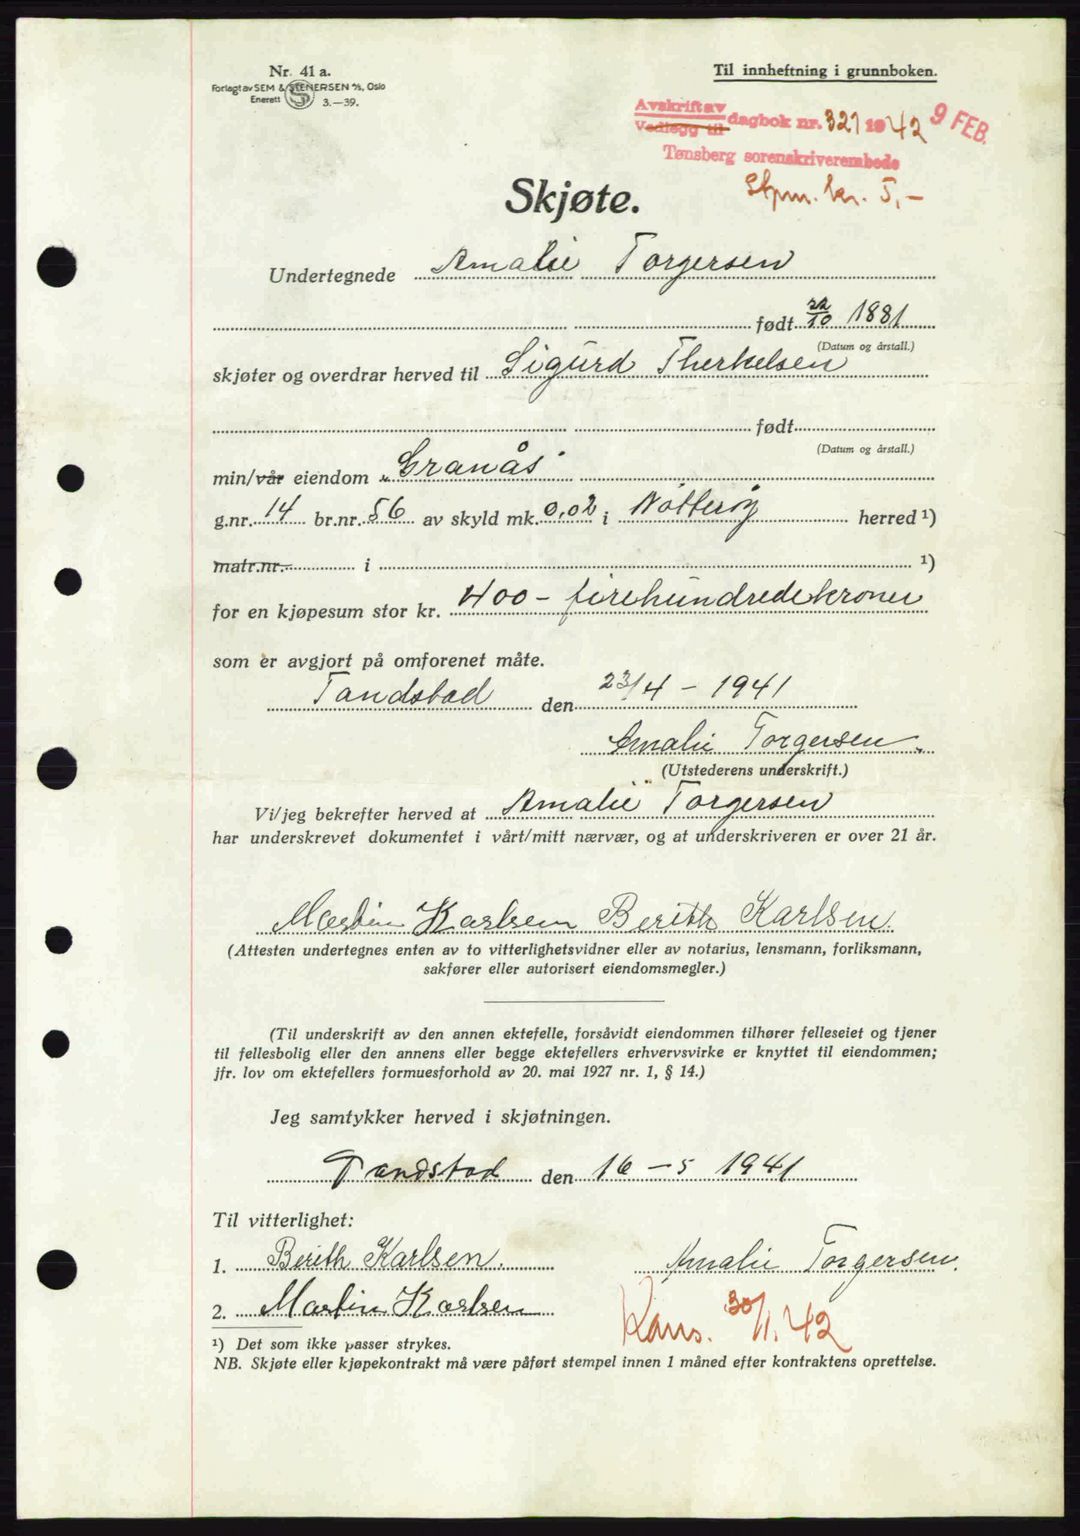 Nr. 41 a.
Forlagt av SEM & STENERSEN A/S, Oslo
Enerett S 3.—39.
Til innheftning i grunnboken.
Avskrift av
Vedlegg til dagbok nr. 321 1942 9 FEB.
Tønsberg sorenskriverembede
Stpm. kr. 5,-
Skjøte.
Undertegnede Amalie Torgersen
født 22/10 1881
(Datum og årstall.)
skjøter og overdrar herved til Sigurd Therkelsen
født
(Datum og årstall.)
min/vår eiendom „Granås"
g.nr. 14 br.nr. 56 av skyld mk. 0,02 i Nøtterøy herred ¹)
matr.nr. i ¹)
for en kjøpesum stor kr. 400 - firehundredekroner
som er avgjort på omforenet måte.
Tandstad den 23/4 - 1941
Amalie Torgersen.
(Utstederens underskrift.)
Vi/jeg bekrefter herved at Amalie Torgersen
har underskrevet dokumentet i vårt/mitt nærvær, og at underskriveren er over 21 år.
Martin Karlsen Berith Karlsen.
(Attesten undertegnes enten av to vitterlighetsvidner eller av notarius, lensmann, forliksmann,
sakfører eller autorisert eiendomsmegler.)
(Til underskrift av den annen ektefelle, forsåvidt eiendommen tilhører felleseiet og tjener
til fellesbolig eller den annens eller begge ektefellers erhvervsvirke er knyttet til eiendommen;
jfr. lov om ektefellers formuesforhold av 20. mai 1927 nr. 1, § 14.)
Jeg samtykker herved i skjøtningen.
Tandstad den 16 - 5 1941
Til vitterlighet:
1. Berith Karlsen. Amalie Torgersen.
2. Martin Karlsen
Kons. 30/1. 42
¹) Det som ikke passer strykes.
NB. Skjøte eller kjøpekontrakt må være påført stempel innen 1 måned efter kontraktens oprettelse.